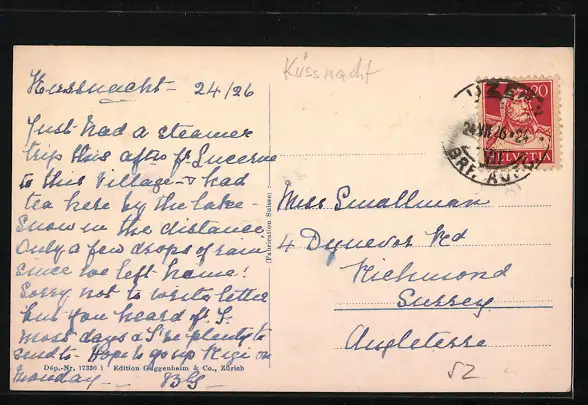 Küssnacht
Kussnacht - 24/26
Just had a steamer
trip this aftn fr Lucerne
to this village - & had
tea here by the lake -
Snow in the distance
Only a few drops of rain
since we left home!
Sorry not to write letter
but you heard fr
most days &
send to - Hope to go up Rigi on
Monday -
(Fabrication Suisse)
Dép.-Nr. 17330 1 Edition Guggenheim & Co., Zürich
20
HELVETIA
LUZERN
24.VII.26
BRF. AUFG.
Miss Smallman
4 Dynevor Rd
Richmond
Surrey
Angleterre
52